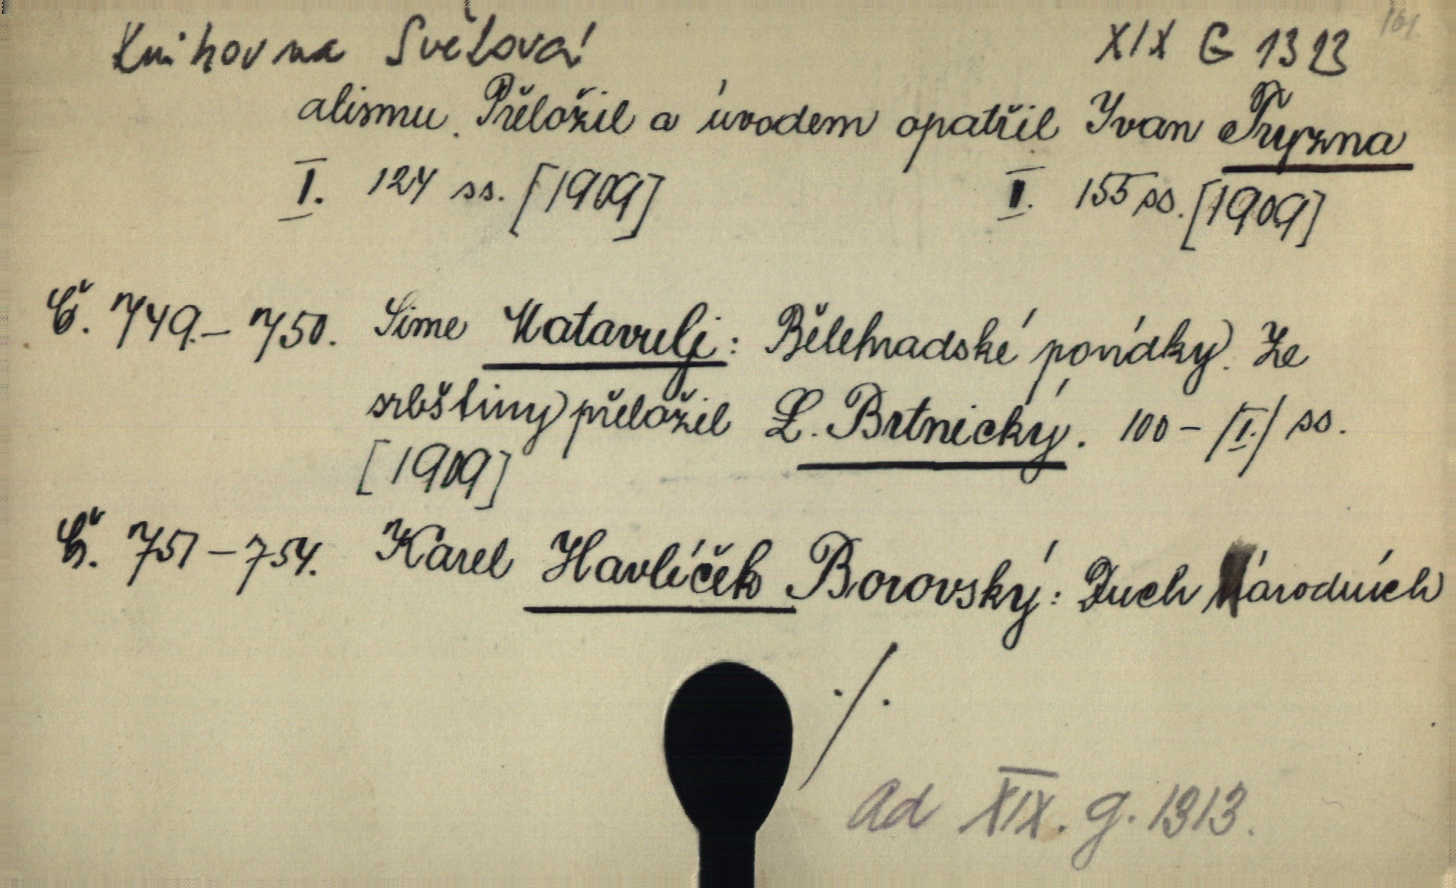 Knihovna Světová XIX G 1313 161
alismu. Přeložil a úvodem opatřil Ivan Tryzna
I. 124 ss. [1909] I. 155 ss. [1909]
Č. 749.– 750. Sime Matavulj: Bělehradské povídky. Ze
srbštiny přeložil L. Brtnický. 100 – /I./ ss.
[1909]
Č. 751 – 754. Karel Havlíček Borovský: Duch Národních
./.
ad XIX. g. 1313.